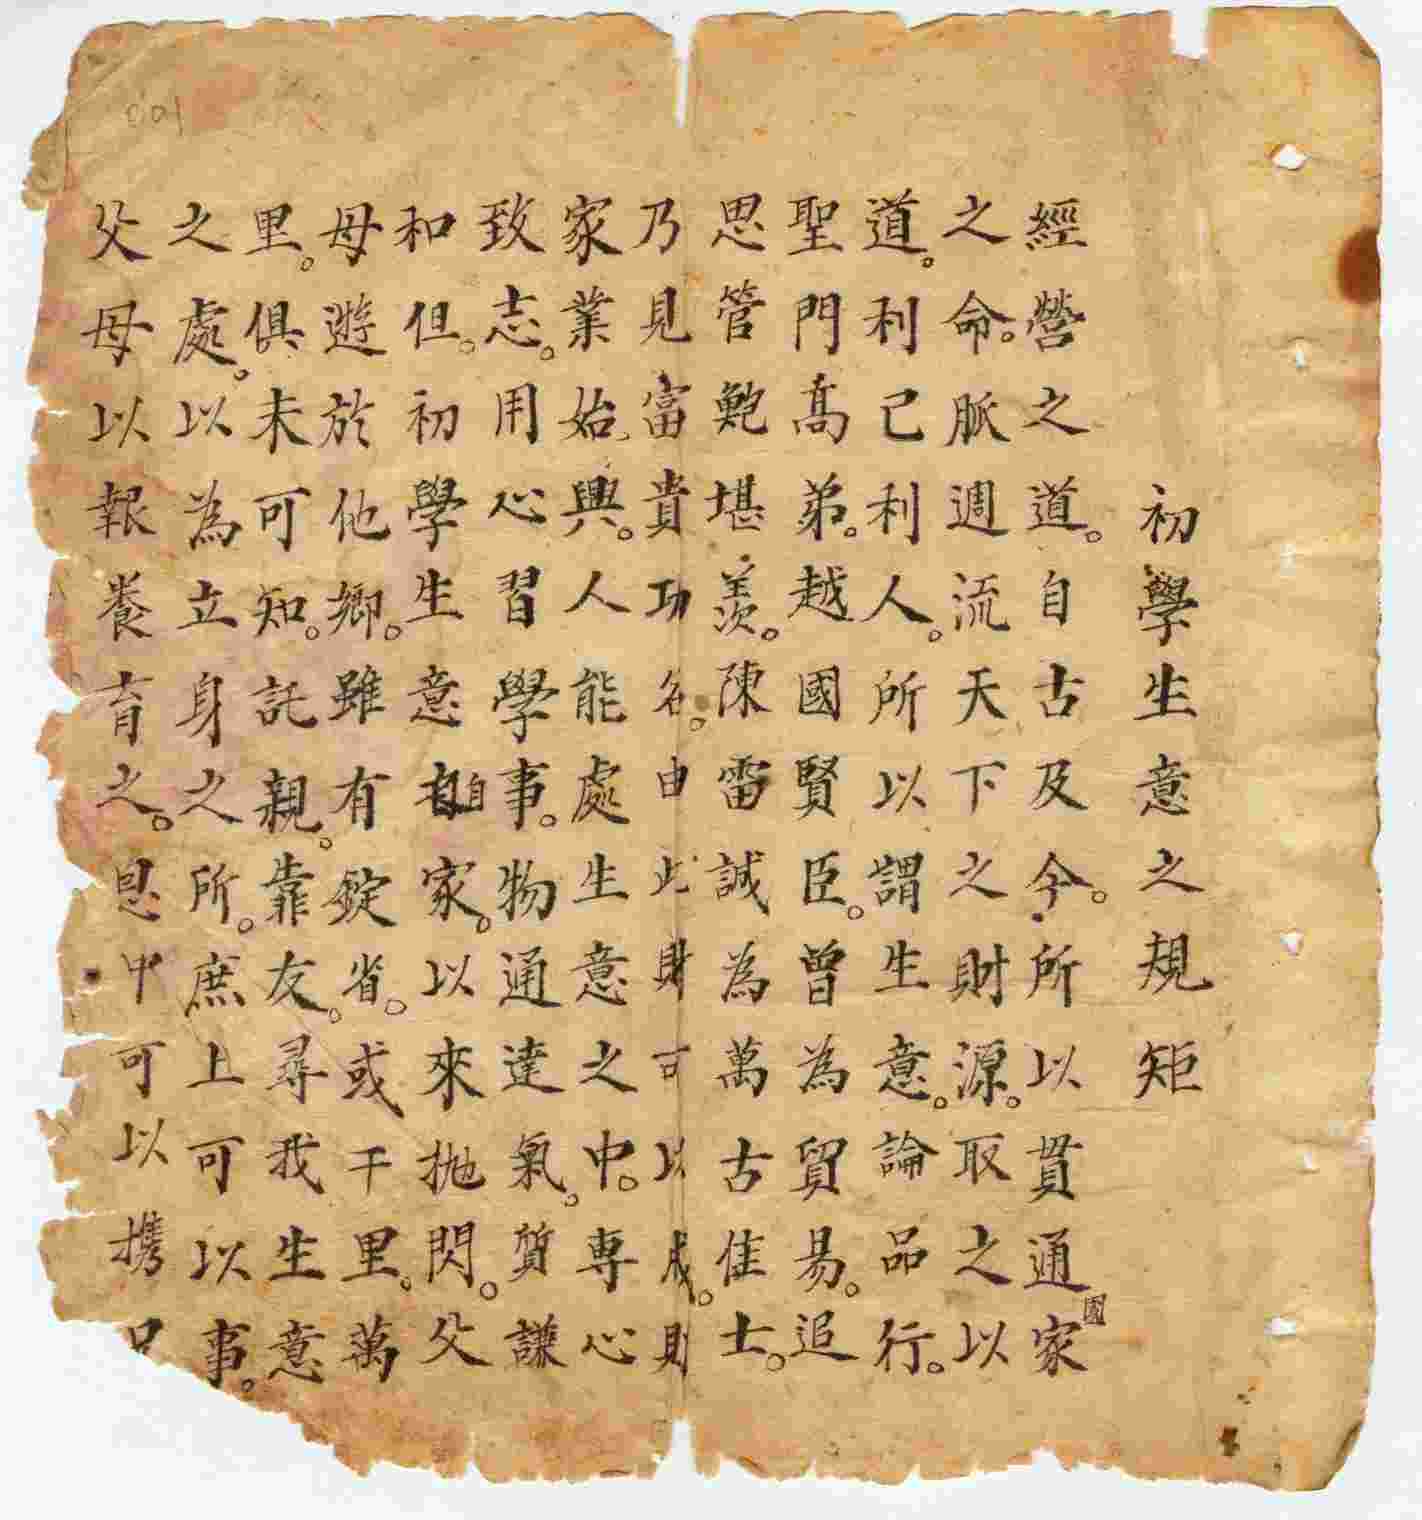 初學生意之規矩
經營之道。自古及今。所以貫通國家
之命。脈週流天下之財源。取之以
道。利己利人。所以謂生意。論品行。
聖門高弟。越國賢臣。曾為貿易。追
思管鮑堪羨。陳雷誠為萬古佳士。
乃見富貴功名。由此財可以成。財
家業始興。人能處生意之中。專心
致志。用心習學事。物通達氣。質謙
和但。初學生意自家。以來拋閃。父
母遊於他鄉。雖有錠省。或千里。萬
里。俱未可知。託親。靠友。尋我生意
之處。以為立身之所。庶上可以事。
父母以報養育之。恩中可以携
001